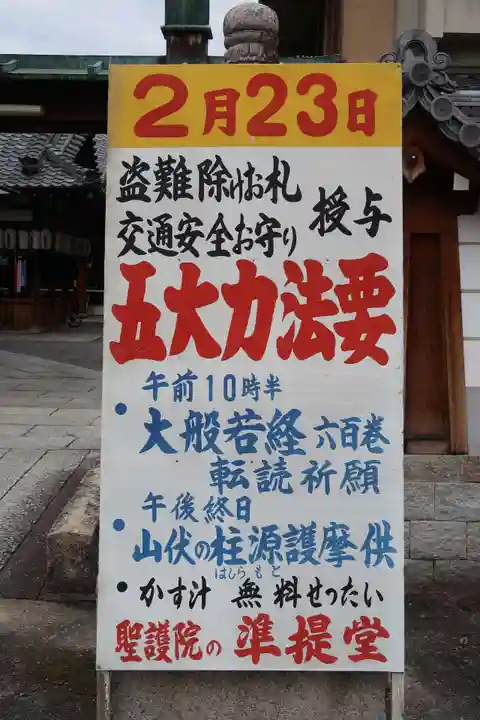 2月23日
盗難除けお札
交通安全お守り
授与
五大力法要
午前10時半
・大般若経六百巻
転読祈願
午後終日
・山伏の柱源護摩供
はしらもと
・かす汁 無料せったい
聖護院の準提堂